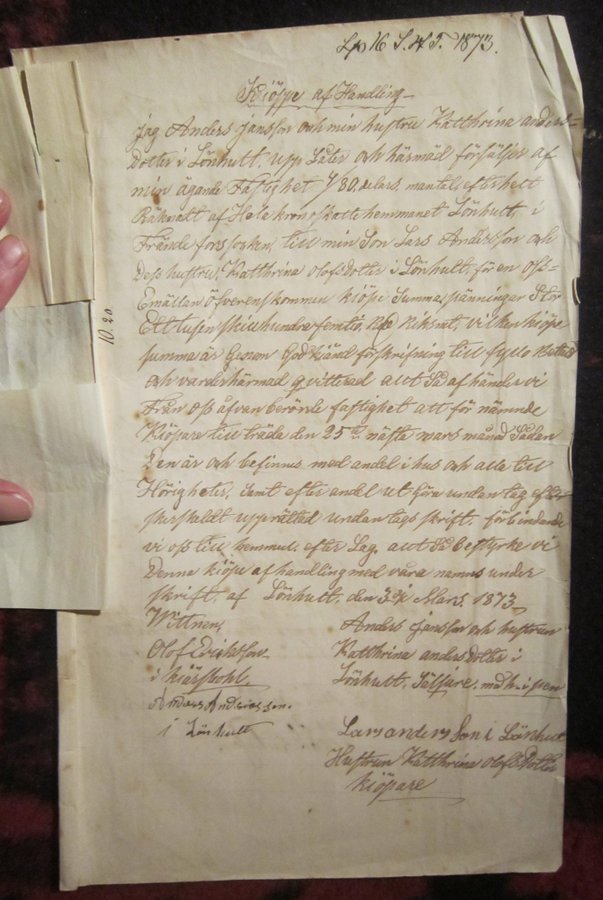 16 S. H. T. 1873.
Kiöpe af Handling
Jag Anders Jansson och min hustru Katthrina anders-
dotter i Lönhult, upp Låter och härmäd försäljer af
min ägande Fastighet 7/80 delars mantal, efter hett
Räknadt af Hela krono skatte hemmanet Lönhult, i
Frändefors socken, till min Son Lars Andersson och
Dess hustru, Katthrina Olofsdotter i Lönhult, för en oss-
Emällan öfverenskommen kiöpe Summa pänningar Stor
Ett tusin sexhundrafemtio, Riksmt, vilken kiöpe
summa är Genom God kiänd förskrifning till fyllo Betald
och varder härmad qvitterad allt Så afhänder vi
Från oss åfvan berörde fastighet att för nämnde
Kiöpare till träda den 25 nästa mars månad Sådan
Den är och befinnes med andel i hus och alla till
Hörigheter, samt efter andel ut Göra undan tag efter
särskeldt upprättad undan tags skrift, förbindande
vi oss till hemmul, efter Lag, allt Så bestyrke vi
Denna kiöpe afhandling med våra namns under
skrift, af Lönhult, den Mars, 1873
10. 20.
Wittnen,
Olof Erickson
i
Anders Andreasson.
i Lönhult
Anders Jansson och hustrun
Katthrina anders dotter i
Lönhult, Säljare, med h. i pen
Lars andersson i Lönhult
Hustrun Katthrina olofsdotter
kiöpare